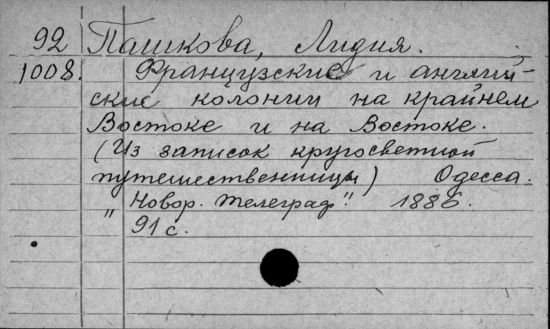 92 Пашкова, Лидия.
1008. Французские и англий-
ские колонии на крайнем
Востоке и на Востоке.
(Из записок кругосветной
путешественницы) Одесса.
"Новор. телеграф". 1886.
91 с.